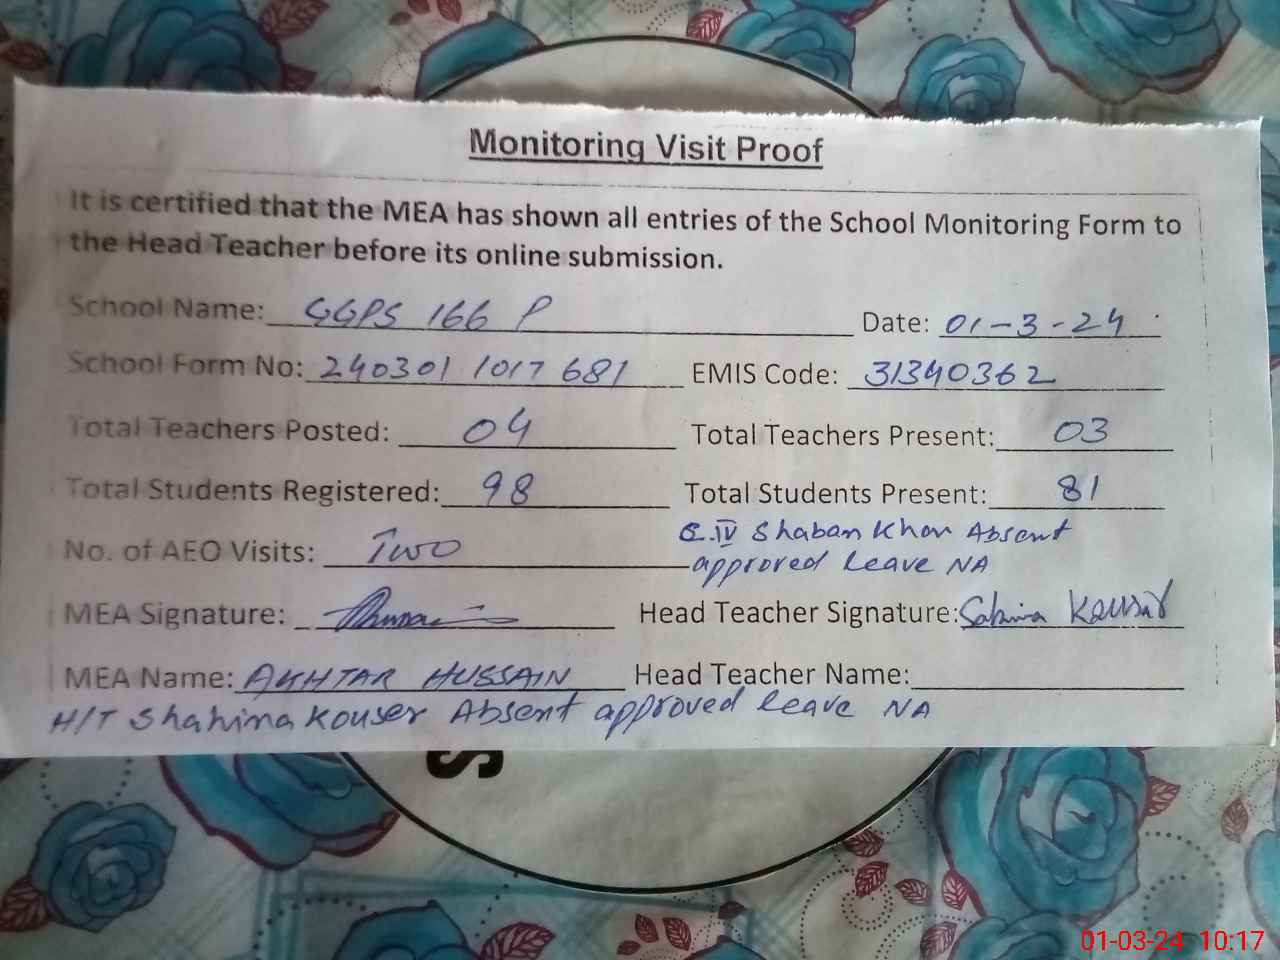 Monitoring Visit Proof
It is certified that the MEA has shown all entries of the School Monitoring Form to
the Head Teacher before its online submission.
School Name: GGPS 166 P Date: 01-3-24
School Form No: 240301 1017 681 EMIS Code: 31340362
Total Teachers Posted: 04 Total Teachers Present: 03
Total Students Registered: 98 Total Students Present: 81
No. of AEO Visits: Two C.IV Shaban Khan Absent
approved leave NA
MEA Signature: Head Teacher Signature: Sabina Kousar
MEA Name: AKHTAR HUSSAIN Head Teacher Name:
H/T Shahina Kouser Absent approved leave NA
S
01-03-24 10:17